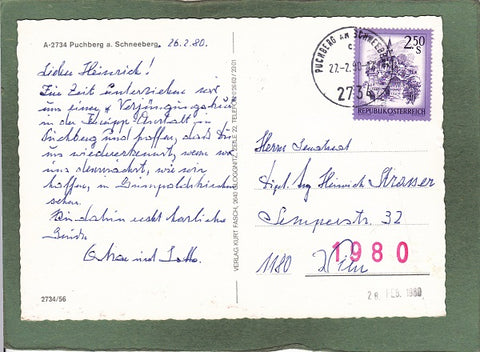 A-2734 Puchberg a. Schneeberg.
26.2.80.
Lieber Heinrich!
Zur Zeit unterziehen wir
uns einer Verjüngungskur
in der Kneipp Anstalt in
Puchberg und hoffen, daß Du
uns wiedererkennst, wenn wir
uns demnächst, wie wir
hoffen, in
sehen.
Bis dahin recht herzliche
Grüße
Otto
2734/56
VERLAG KURT FASCH, 2640 GLOGGNITZ, ZEILE 22, TELEFON
PUCHBERG AM SCHNEEBERG
2734
2.50
S
REPUBLIK ÖSTERREICH
Herrn
Dipl. Ing Heinrich Strasser
Semperstr. 32
1180 Wien
1980
FEB. 1980